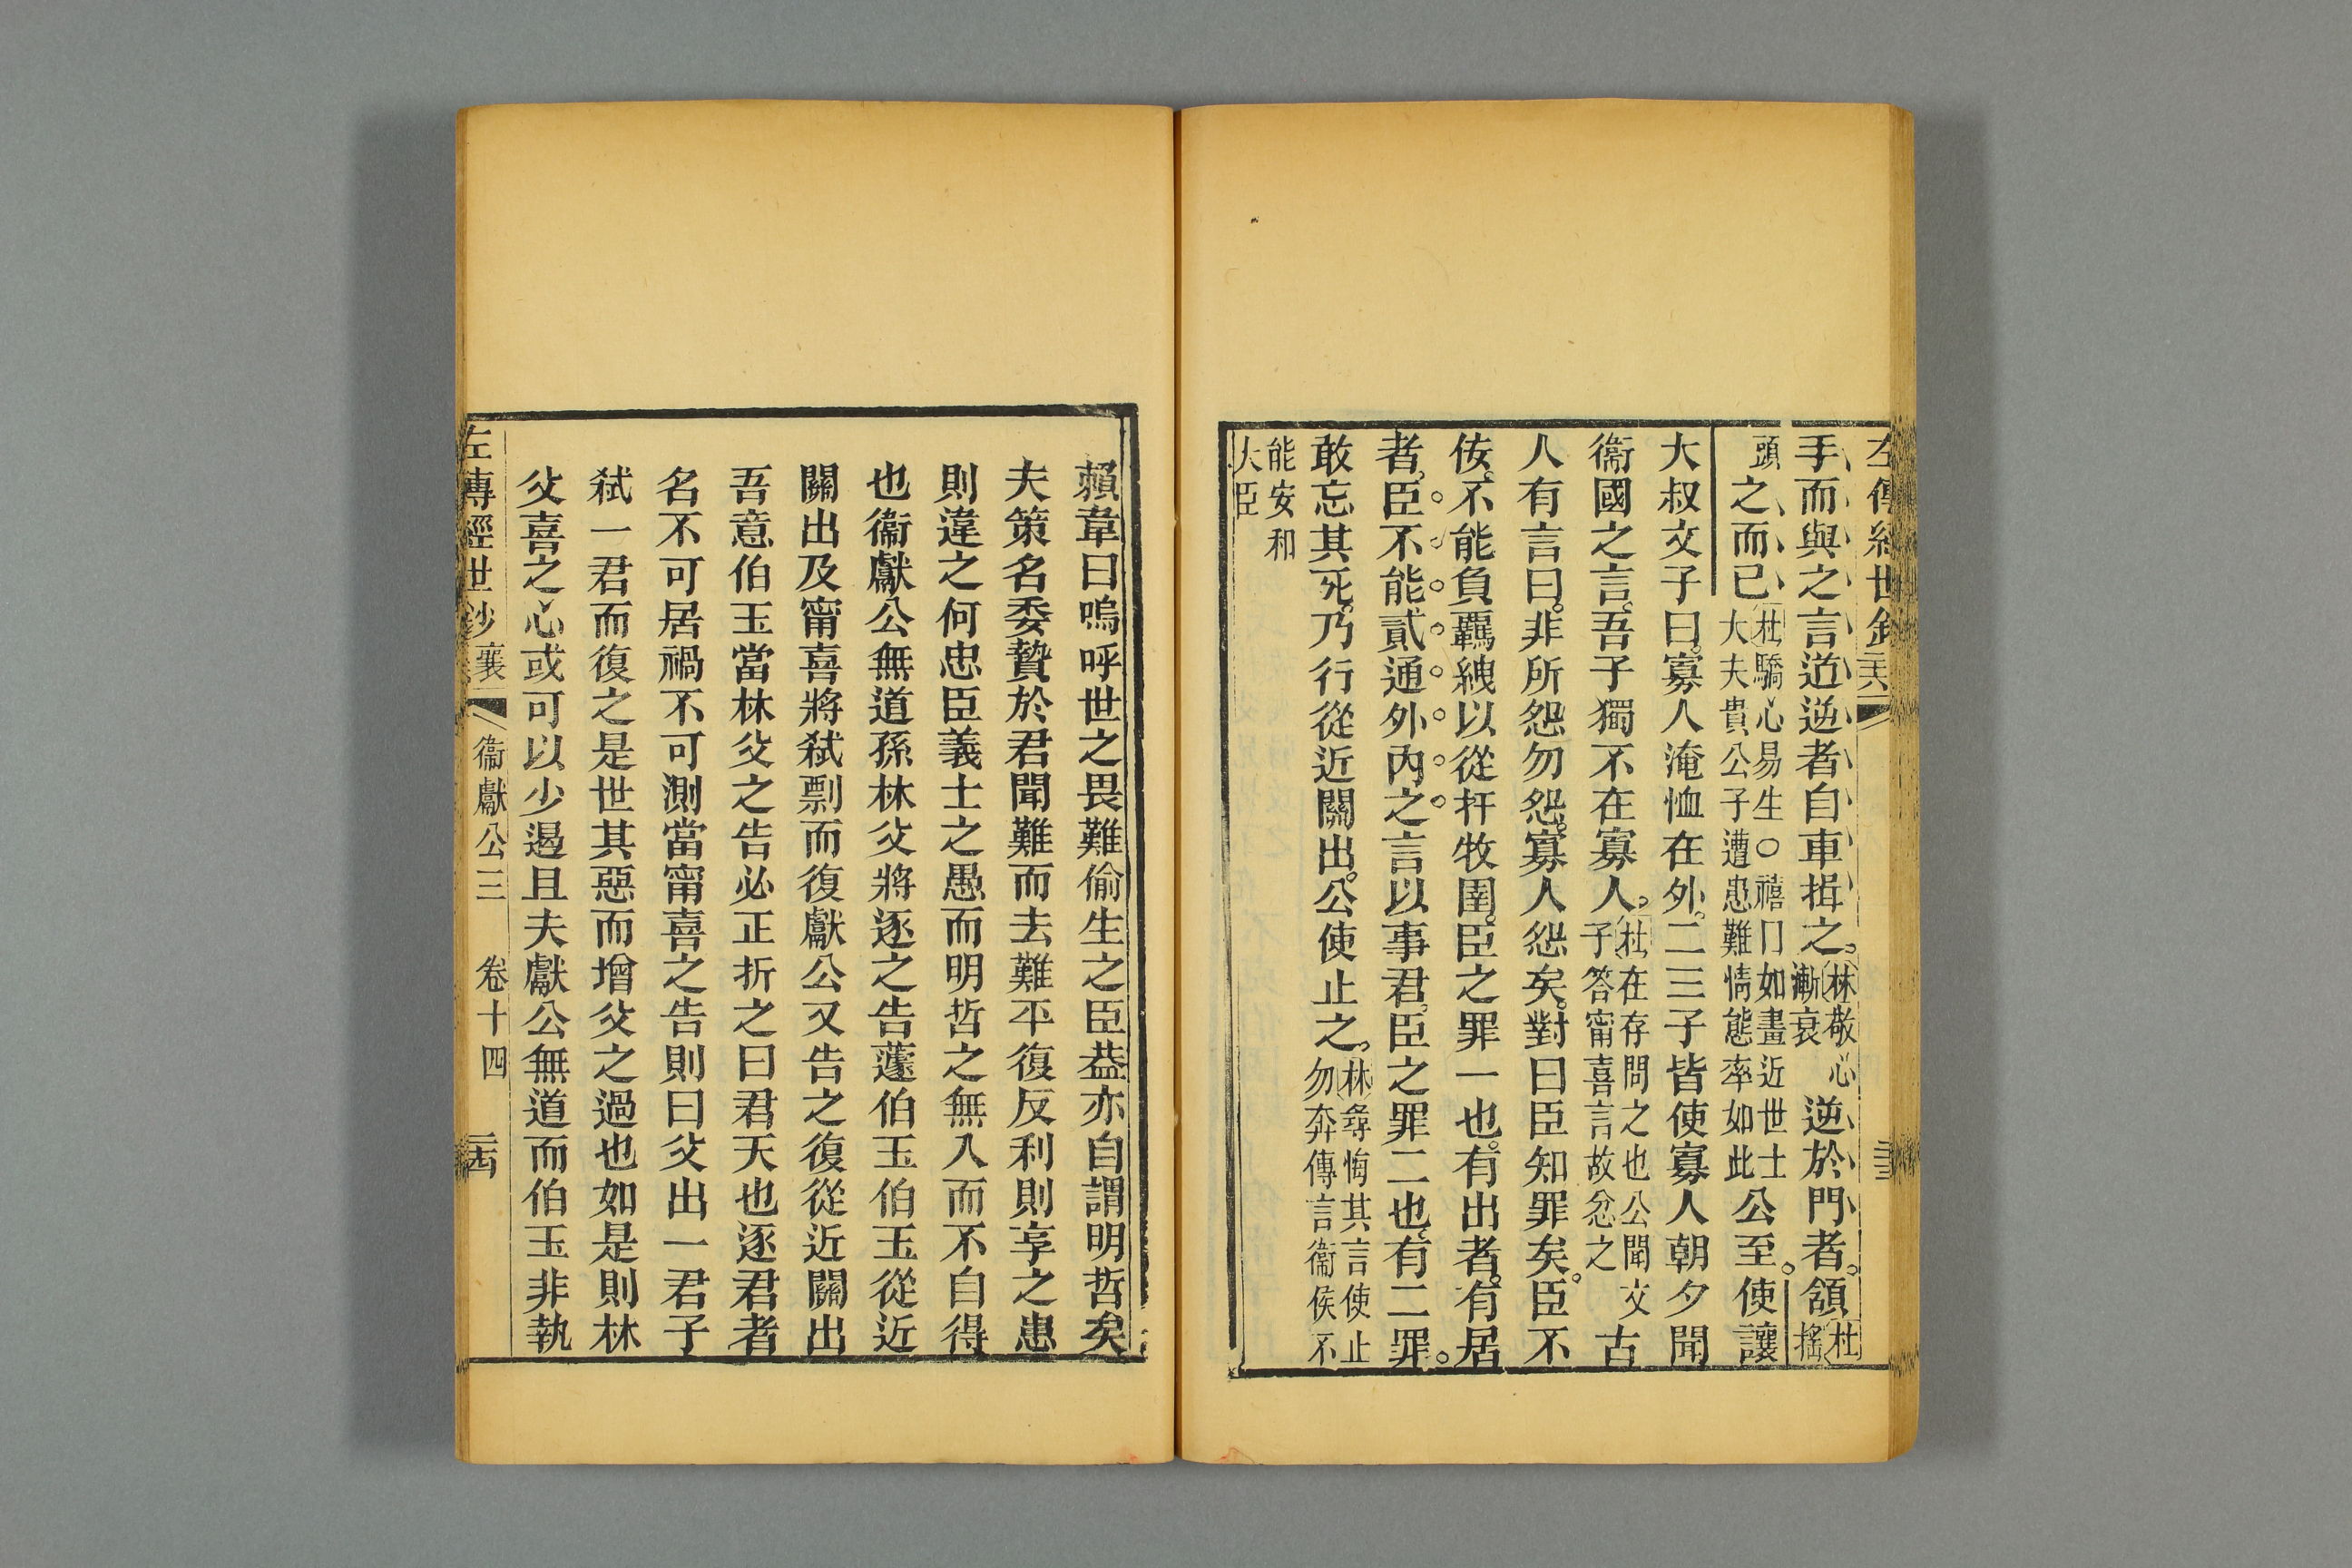 手而與之言道逆者自車揖之林敬心漸衰逆於門者頷杜搖
頭之而已杜驕心易生○禧曰如畫近世士大夫貴公子遭患難情態率如此公至使讓
大叔文子曰寡人淹恤在外二三子皆使寡人朝夕聞
衞國之言吾子獨不在寡人杜在存問之也公聞文子答甯喜言故忿之古
人有言曰非所怨勿怨寡人怨矣對曰臣知罪矣臣不
佞不能負羈絏以從扞牧圉臣之罪一也有出者有居
者臣不能貳通外內之言以事君臣之罪二也有二罪
敢忘其死乃行從近關出公使止之林尋悔其言使止勿奔傳言衞侯不
能安和
大臣
賴韋曰嗚呼世之畏難偷生之臣葢亦自謂明哲矣
夫策名委贄於君聞難而去難平復反利則享之患
則違之何忠臣義士之愚而明哲之無入而不自得
也衞獻公無道孫林父將逐之告蘧伯玉伯玉從近
關出及甯喜將弑剽而復獻公又告之復從近關出
吾意伯玉當林父之告必正折之曰君天也逐君者
名不可居禍不可測當甯喜之告則曰父出一君子
弑一君而復之是世其惡而增父之過也如是則林
父喜之心或可以少遏且夫獻公無道而伯玉非執
左傳經世鈔 襄 衞獻公三 卷十四